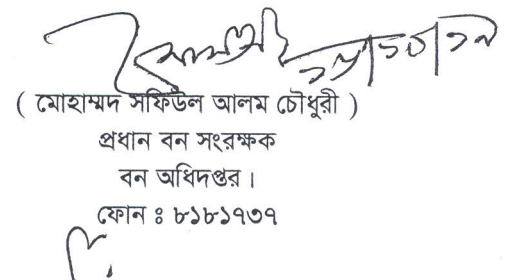 ( মোহাম্মদ সফিউল আলম চৌধুরী )
প্রধান বন সংরক্ষক
বন অধিদপ্তর ।
ফোন ঃ ৮১৮১৭৩৭